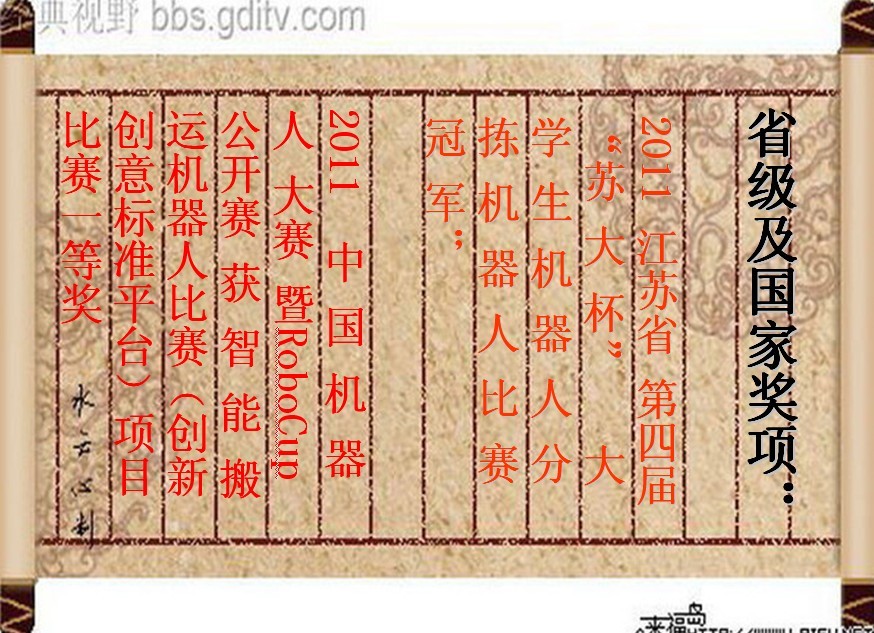 经典视野 bbs.gditv.com
省级及国家奖项：
2011 江苏省 第四届
“苏大杯” 大
学生机器人分
拣机器人比赛
冠军；
2011 中国机器
人大赛暨RoboCup
公开赛获智能搬
运机器人比赛（创新
创意标准平台）项目
比赛一等奖